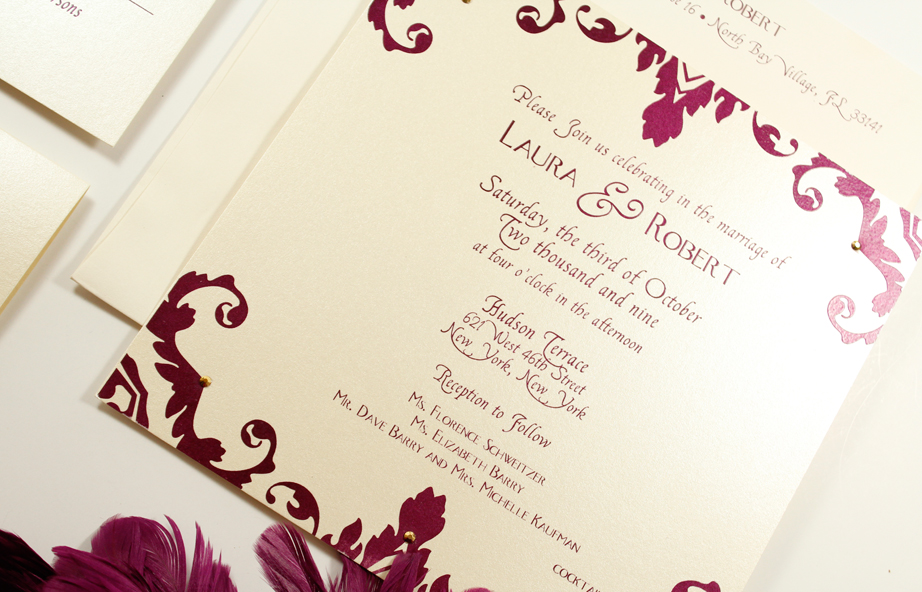 ersons
ROBERT
16 • North Bay Village, FL 33141
Please Join us celebrating in the marriage of
LAURA & ROBERT
Saturday, the third of October
Two thousand and nine
at four o'clock in the afternoon
Hudson Terrace
621 West 46th Street
New York, New York
Reception to Follow
MS. FLORENCE SCHWEITZER
MS. ELIZABETH BARRY
MR. DAVE BARRY AND MRS. MICHELLE KAUFMAN
COCKTA